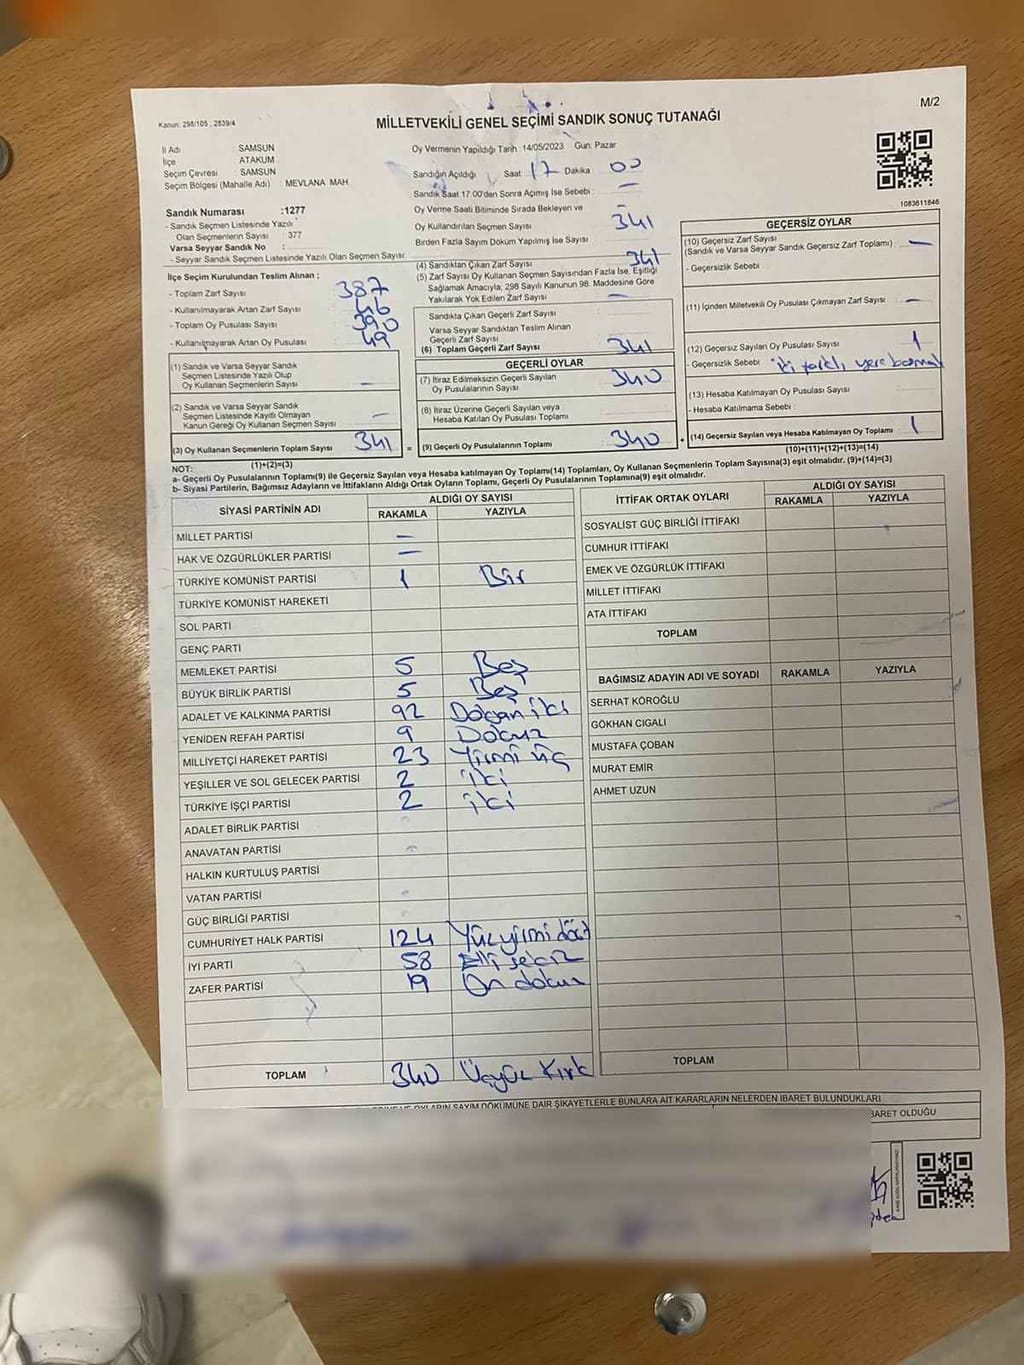 M/2
Kanun: 298/105 , 2839/4
MİLLETVEKİLİ GENEL SEÇİMİ SANDIK SONUÇ TUTANAĞI
İl Adı SAMSUN
İlçe ATAKUM
Seçim Çevresi : SAMSUN
Seçim Bölgesi (Mahalle Adı) : MEVLANA MAH.
Sandık Numarası :1277
- Sandık Seçmen Listesinde Yazılı
Olan Seçmenlerin Sayısı : 377
Varsa Seyyar Sandık No :
- Seyyar Sandık Seçmen Listesinde Yazılı Olan Seçmen Sayısı:
Oy Vermenin Yapıldığı Tarih :14/05/2023 Gün: Pazar
Sandığın Açıldığı Saat 17 Dakika 00
Sandık Saat 17:00'den Sonra Açımış İse Sebebi : —
Oy Verme Saati Bitiminde Sırada Bekleyen ve
Oy Kullandırılan Seçmen Sayısı 341
Birden Fazla Sayım Döküm Yapılmış İse Sayısı
1083611846
İlçe Seçim Kurulundan Teslim Alınan ;
- Toplam Zarf Sayısı 387
- Kullanılmayarak Artan Zarf Sayısı 46
- Toplam Oy Pusulası Sayısı 390
- Kullanılmayarak Artan Oy Pusulası 49
(1) Sandık ve Varsa Seyyar Sandık
Seçmen Listesinde Yazılı Olup
Oy Kullanan Seçmenlerin Sayısı —
(2) Sandık ve Varsa Seyyar Sandık
Seçmen Listesinde Kayıtlı Olmayan
Kanun Gereği Oy Kullanan Seçmen Sayısı —
(3) Oy Kullanan Seçmenlerin Toplam Sayısı 341 =
(1)+(2)=(3)
(4) Sandıktan Çıkan Zarf Sayısı 341
(5) Zarf Sayısı Oy Kullanan Seçmen Sayısından Fazla İse, Eşitliği
Sağlamak Amacıyla, 298 Sayılı Kanunun 98. Maddesine Göre
Yakılarak Yok Edilen Zarf Sayısı —
Sandıkta Çıkan Geçerli Zarf Sayısı
Varsa Seyyar Sandıktan Teslim Alınan
Geçerli Zarf Sayısı
(6) Toplam Geçerli Zarf Sayısı 341
GEÇERLİ OYLAR
(7) İtiraz Edilmeksizin Geçerli Sayılan
Oy Pusulalarının Sayısı 340
(8) İtiraz Üzerine Geçerli Sayılan veya
Hesaba Katılan Oy Pusulası Toplamı
(9) Geçerli Oy Pusulalarının Toplamı 340 +
GEÇERSİZ OYLAR
(10) Geçersiz Zarf Sayısı
(Sandık ve Varsa Seyyar Sandık Geçersiz Zarf Toplamı) : —
- Geçersizlik Sebebi :
(11) İçinden Milletvekili Oy Pusulası Çıkmayan Zarf Sayısı : —
(12) Geçersiz Sayılan Oy Pusulası Sayısı : 1
- Geçersizlik Sebebi iki farklı yere basmak
(13) Hesaba Katılmayan Oy Pusulası Sayısı :
- Hesaba Katılmama Sebebi :
(14) Geçersiz Sayılan veya Hesaba Katılmayan Oy Toplamı : 1
(10)+(11)+(12)+(13)=(14)
NOT:
a- Geçerli Oy Pusulalarının Toplamı(9) ile Geçersiz Sayılan veya Hesaba katılmayan Oy Toplamı(14) Toplamları, Oy Kullanan Seçmenlerin Toplam Sayısına(3) eşit olmalıdır. (9)+(14)=(3)
b- Siyasi Partilerin, Bağımsız Adayların ve İttifakların Aldığı Ortak Oyların Toplamı, Geçerli Oy Pusulalarının Toplamına(9) eşit olmalıdır.
SİYASİ PARTİNİN ADI ALDIĞI OY SAYISI
RAKAMLA YAZIYLA
MİLLET PARTİSİ —
HAK VE ÖZGÜRLÜKLER PARTİSİ —
TÜRKİYE KOMÜNİST PARTİSİ 1 Bir
TÜRKİYE KOMÜNİST HAREKETİ
SOL PARTİ
GENÇ PARTİ
MEMLEKET PARTİSİ 5 Beş
BÜYÜK BİRLİK PARTİSİ 5 Beş
ADALET VE KALKINMA PARTİSİ 92 Doksan iki
YENİDEN REFAH PARTİSİ 9 Dokuz
MİLLİYETÇİ HAREKET PARTİSİ 23 Yirmi üç
YEŞİLLER VE SOL GELECEK PARTİSİ 2 iki
TÜRKİYE İŞÇİ PARTİSİ 2 iki
ADALET BİRLİK PARTİSİ
ANAVATAN PARTİSİ
HALKIN KURTULUŞ PARTİSİ
VATAN PARTİSİ
GÜÇ BİRLİĞİ PARTİSİ
CUMHURİYET HALK PARTİSİ 124 Yüzyirmi dört
İYİ PARTİ 58 Elli sekiz
ZAFER PARTİSİ 19 On dokuz
TOPLAM 340 Üçyüz kırk
İTTİFAK ORTAK OYLARI ALDIĞI OY SAYISI
RAKAMLA YAZIYLA
SOSYALİST GÜÇ BİRLİĞİ İTTİFAKI
CUMHUR İTTİFAKI
EMEK VE ÖZGÜRLÜK İTTİFAKI
MİLLET İTTİFAKI
ATA İTTİFAKI
TOPLAM
BAĞIMSIZ ADAYIN ADI VE SOYADI RAKAMLA YAZIYLA
SERHAT KÖROĞLU
GÖKHAN CIGALI
MUSTAFA ÇOBAN
MURAT EMİR
AHMET UZUN
TOPLAM
OYLARIN SAYIM DÖKÜMÜNE DAİR ŞİKAYETLERLE BUNLARA AİT KARARLARIN NELERDEN İBARET BULUNDUKLARI
BARET OLDUĞU